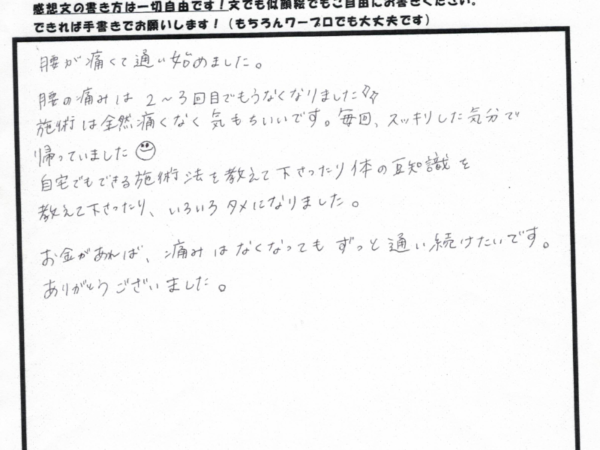 感想文の書き方は一切自由です！文でも似顔絵でもご自由にお書きください。
できれば手書きでお願いします！（もちろんワープロでも大丈夫です）
腰が痛くて通い始めました。
腰の痛みは2～3回目でもうなくなりました
施術は全然痛くなく気もちいいです。毎回、スッキリした気分で
帰っていました
自宅でもできる施術法を教えて下さったり体の豆知識を
教えて下さったり、いろいろタメになりました。
お金があれば、痛みはなくなってもずっと通い続けたいです。
ありがとうございました。